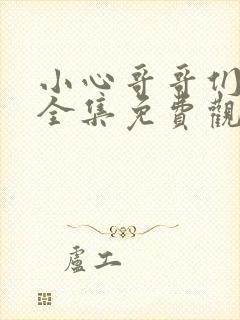 小心哥哥们
全集免費觀
盧工